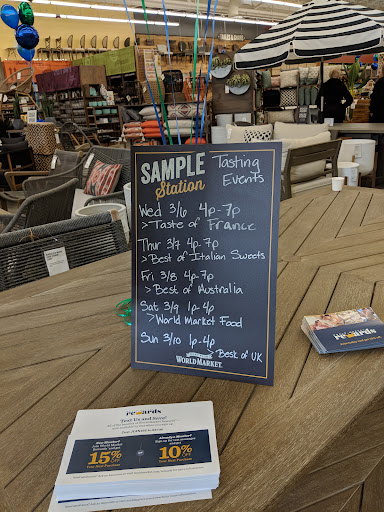 SAMPLE
Station
Tasting
Events
Wed 3/6 4p-7p
>Taste of France
Thur 3/7 4p-7p
>Best of Italian Sweets
Fri 3/8 4p-7p
>Best of Australia
Sat 3/9 1p-4p
>World Market Food
Sun 3/10 1p-4p
>Best of UK
WORLD MARKET
rewards
15% OFF
10% OFF
Your Next Purchase